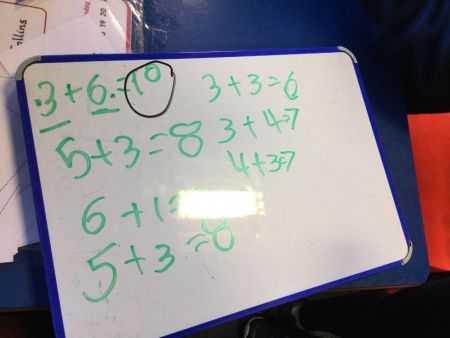 ·3+6·=10
5+3=8
6+1=
5+3=8
3+3=6
3+4=7
4+3=7
llins
19 20